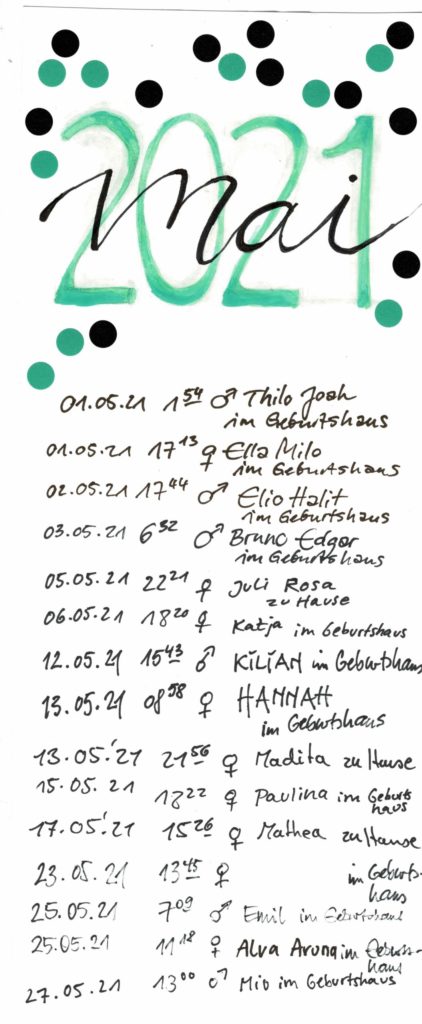 2021
Mai
01.05.21 1 54 ♂ Thilo Joah
im Geburtshaus
01.05.21 17 13 ♀ Ella Milo
im Geburtshaus
02.05.21 17 44 ♂ Elio Halit
im Geburtshaus
03.05.21 6 32 ♂ Bruno Edgar
im Geburtshaus
05.05.21 22 21 ♀ Juli Rosa
zu Hause
06.05.21 18 20 ♀ Katja im Geburtshaus
12.05.21 15 43 ♂ KILIAN im Geburtshaus
13.05.21 08 58 ♀ HANNAH
im Geburtshaus
13.05.21 21 56 ♀ Madita zu Hause
15.05.21 18 22 ♀ Paulina im Geburts
haus
17.05.21 15 26 ♀ Mathea zu Hause
23.05.21 13 45 ♀ im Geburts-
haus
25.05.21 7 09 ♂ Emil im Geburtshaus
25.05.21 11 18 ♀ Alva Aruna im Geburts-
haus
27.05.21 13 00 ♂ Mio im Geburtshaus